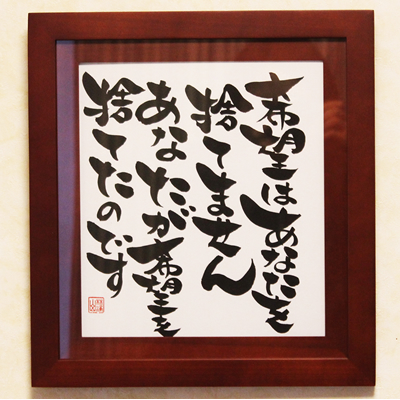 希望はあなたを
捨てません
あなたが希望を
捨てたのです